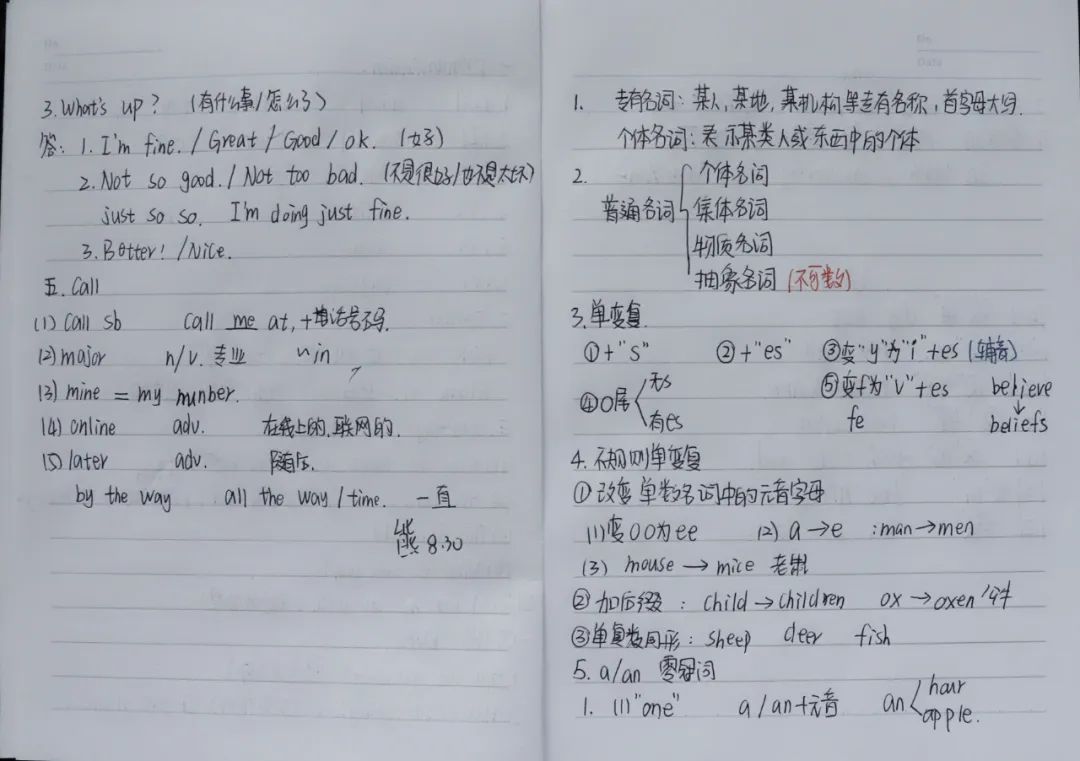 3. What's up? (有什么事/怎么了)
答: 1. I'm fine. / Great / Good / ok. (好)
2. Not so good. / Not too bad. (不是很好/也不是太坏)
just so so. I'm doing just fine.
3. Better! / Nice.
五. Call
(1) Call sb call me at, + 电话号码.
(2) major n/v. 专业 ~ in
(3) mine = my munber.
(4) online adv. 在线上的, 联网的.
(5) later adv. 随后.
by the way all the way / time. 一直
熊 8.30
1. 专有名词: 某人, 某地, 某机构等专有名称, 首字母大写.
个体名词: 表示某类人或东西中的个体
2. 普通名词
个体名词
集体名词
物质名词
抽象名词 (不可数)
3. 单变复
① + "s" ② + "es" ③ 变"y"为"i" + es (辅音)
④ O尾 无s 有es
⑤ 变f为"v" + es believe
fe ↓ beliefs
4. 不规则单变复
① 改变单数名词中的元音字母
(1) 变OO为ee (2) a → e : man → men
(3) mouse → mice 老鼠
② 加后缀: child → children ox → oxen 公牛
③ 单复数同形: sheep deer fish
5. a/an 零冠词
1. (1) "one" a / an + 元音 an hour apple.